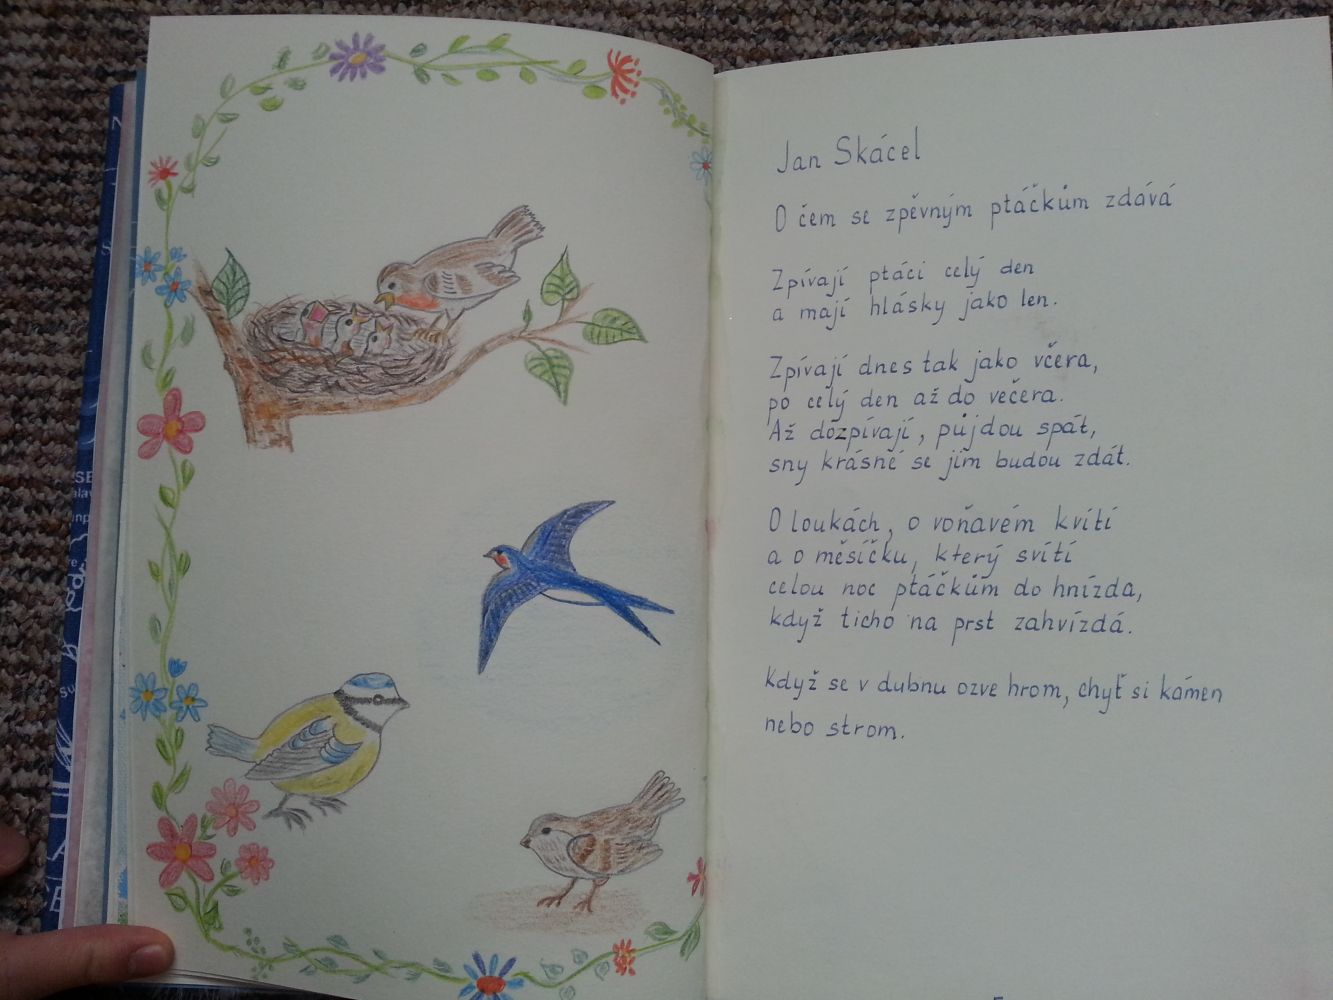 Jan Skácel
O čem se zpěvným ptáčkům zdává
Zpívají ptáci celý den
a mají hlásky jako len.
Zpívají dnes tak jako včera,
po celý den až do večera.
Až dozpívají, půjdou spát,
sny krásné se jim budou zdát.
O loukách, o voňavém kvítí
a o měsíčku, který svítí
celou noc ptáčkům do hnízda,
když ticho na prst zahvízdá.
Když se v dubnu ozve hrom, chyť si kámen
nebo strom.